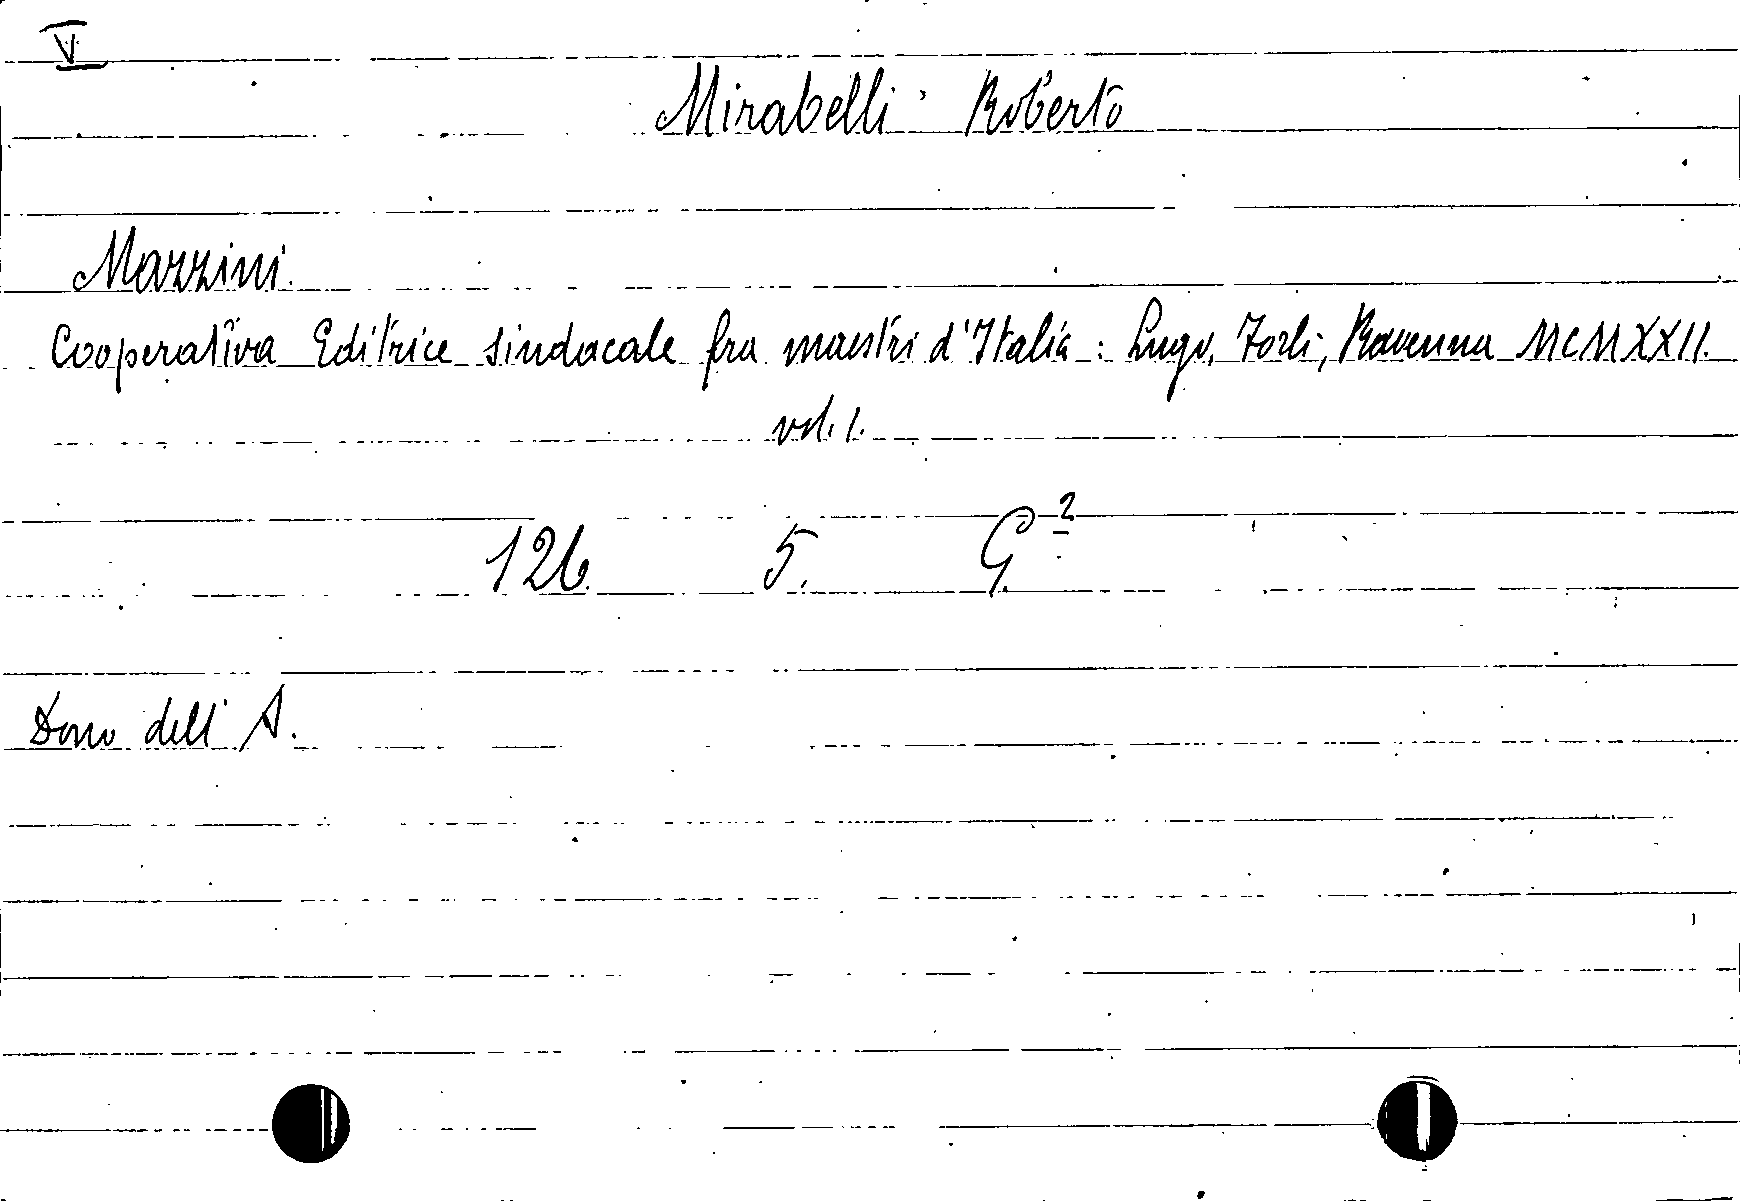 V
Mirabelli Roberto
Mazzini.
Cooperativa Editrice sindacale fra maestri d'Italia: Lugo, Forlì, Ravenna MCMXXII.
vol. 1.
126. 5. G.²
Dono dell' A.